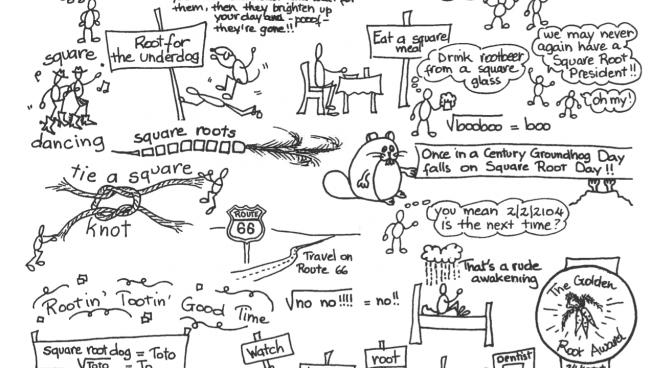 them, then they brighten up
your day and -poof-
they're gone!!
square
dancing
Root for
the underdog
Eat a square
meal
Drink rootbeer
from a square
glass
we may never
again have a
Square Root
President!!
oh my!
√booboo = boo
square roots
Once in a Century Groundhog Day
falls on Square Root Day!!
tie a square
knot
ROUTE
66
Travel on
Route 66
you mean 2/2/2104
is the next time?
That's a rude
awakening
Rootin' Tootin' Good Time
√no no!!!! = no!!
The Golden
Root Award
square root dog = Toto
√Toto = To
Watch
root
Dentist